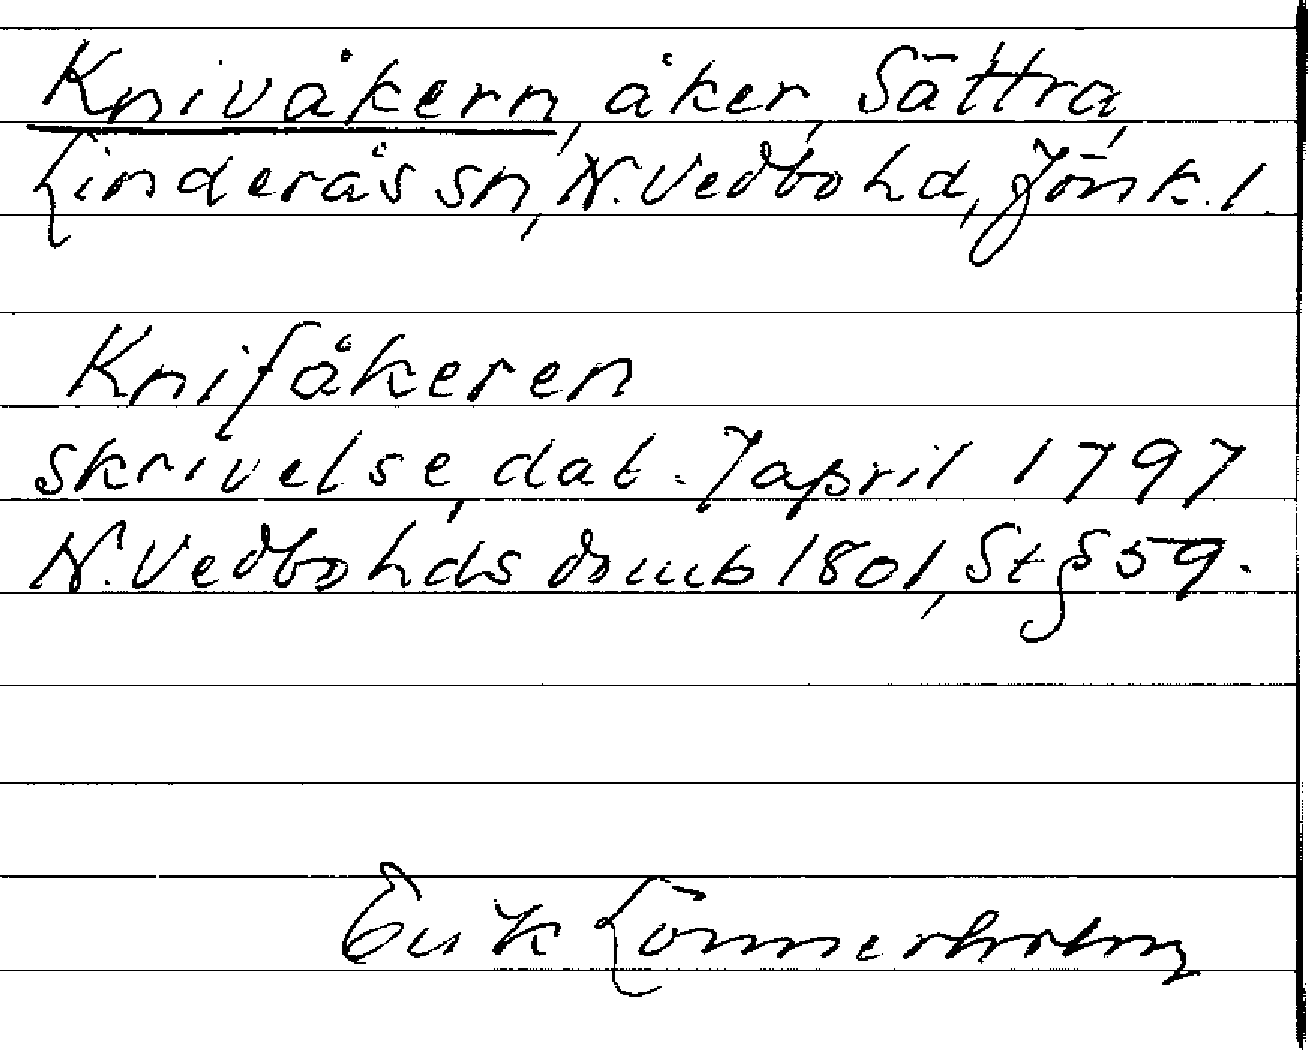 Knivåkern, åker, Sättra,
Linderås sn, N. Vedbo hd, Jönk. l.
Knifåkeren
skrivelse, dat. 7 april 1797
N. Vedbo hds domb 1801, St § 59.
Erik Lönnerholm